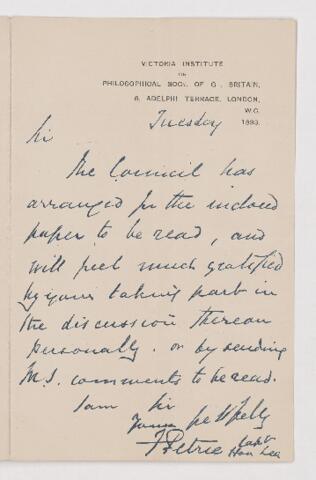 VICTORIA INSTITUTE
OR
PHILOSOPHICAL SOCY. OF G. BRITAIN,
8, ADELPHI TERRACE, LONDON,
W.C.
Tuesday 1893.
Sir
The Council has
arranged for the inclosed
paper to be read, and
will feel much gratified
by your taking part in
the discussion thereon
personally. or by sending
M.S. comments to be read.
I am Sir
Yours
F Petrie Capt
Hon Sec